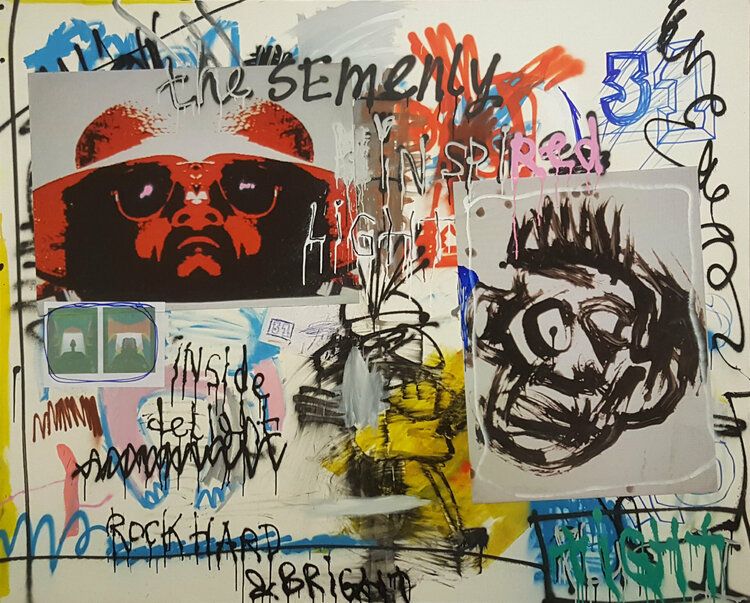 the SEmenly
34
iNSPiRed
LiGHt
34
iNSide
deLight
ROCK HARD
& BRiGHt
tiGHt